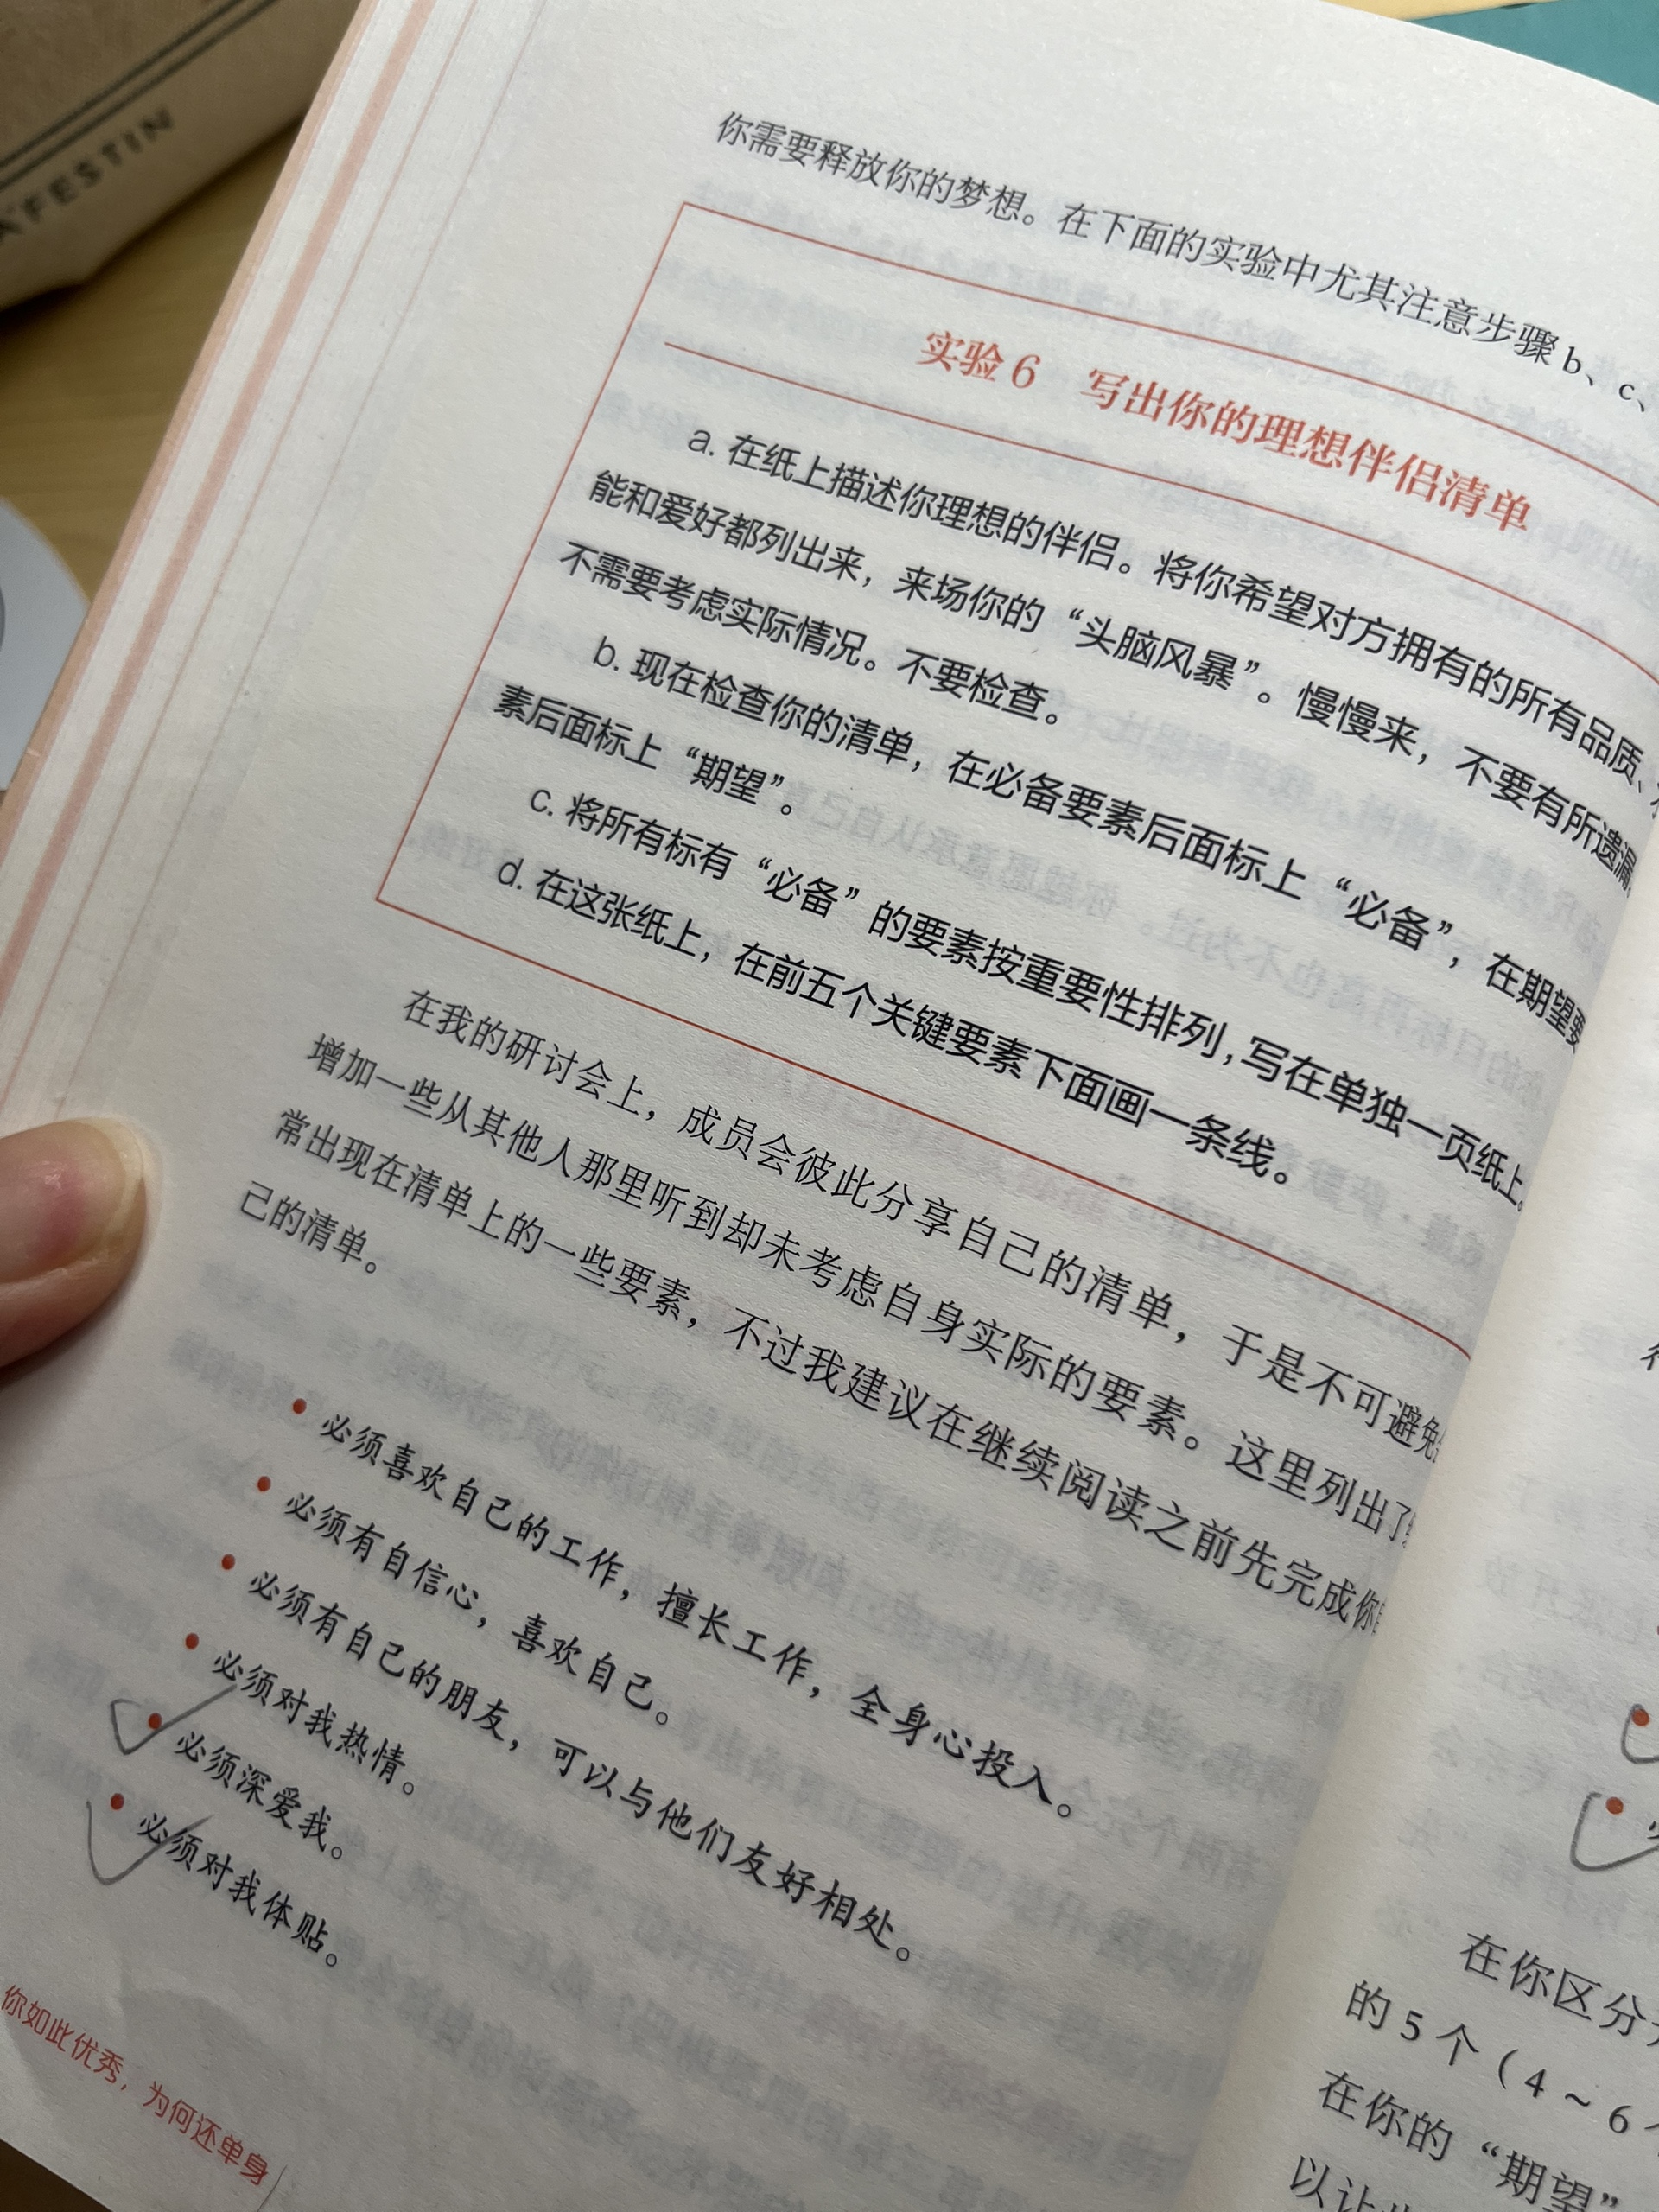 AFESTIN
你需要释放你的梦想。在下面的实验中尤其注意步骤 b、c、
实验 6 写出你的理想伴侣清单
a. 在纸上描述你理想的伴侣。将你希望对方拥有的所有品质、
能和爱好都列出来，来场你的“头脑风暴”。慢慢来，不要有所遗漏，
不需要考虑实际情况。不要检查。
b. 现在检查你的清单，在必备要素后面标上“必备”，在期望要
素后面标上“期望”。
c. 将所有标有“必备”的要素按重要性排列，写在单独一页纸上。
d. 在这张纸上，在前五个关键要素下面画一条线。
在我的研讨会上，成员会彼此分享自己的清单，于是不可避免
增加一些从其他人那里听到却未考虑自身实际的要素。这里列出了
常出现在清单上的一些要素，不过我建议在继续阅读之前先完成你
己的清单。
• 必须喜欢自己的工作，擅长工作，全身心投入。
• 必须有自信心，喜欢自己。
• 必须有自己的朋友，可以与他们友好相处。
• 必须对我热情。
• 必须深爱我。
• 必须对我体贴。
你如此优秀，为何还单身
在你区分
的 5 个（4 ~ 6
在你的“期望”
以让